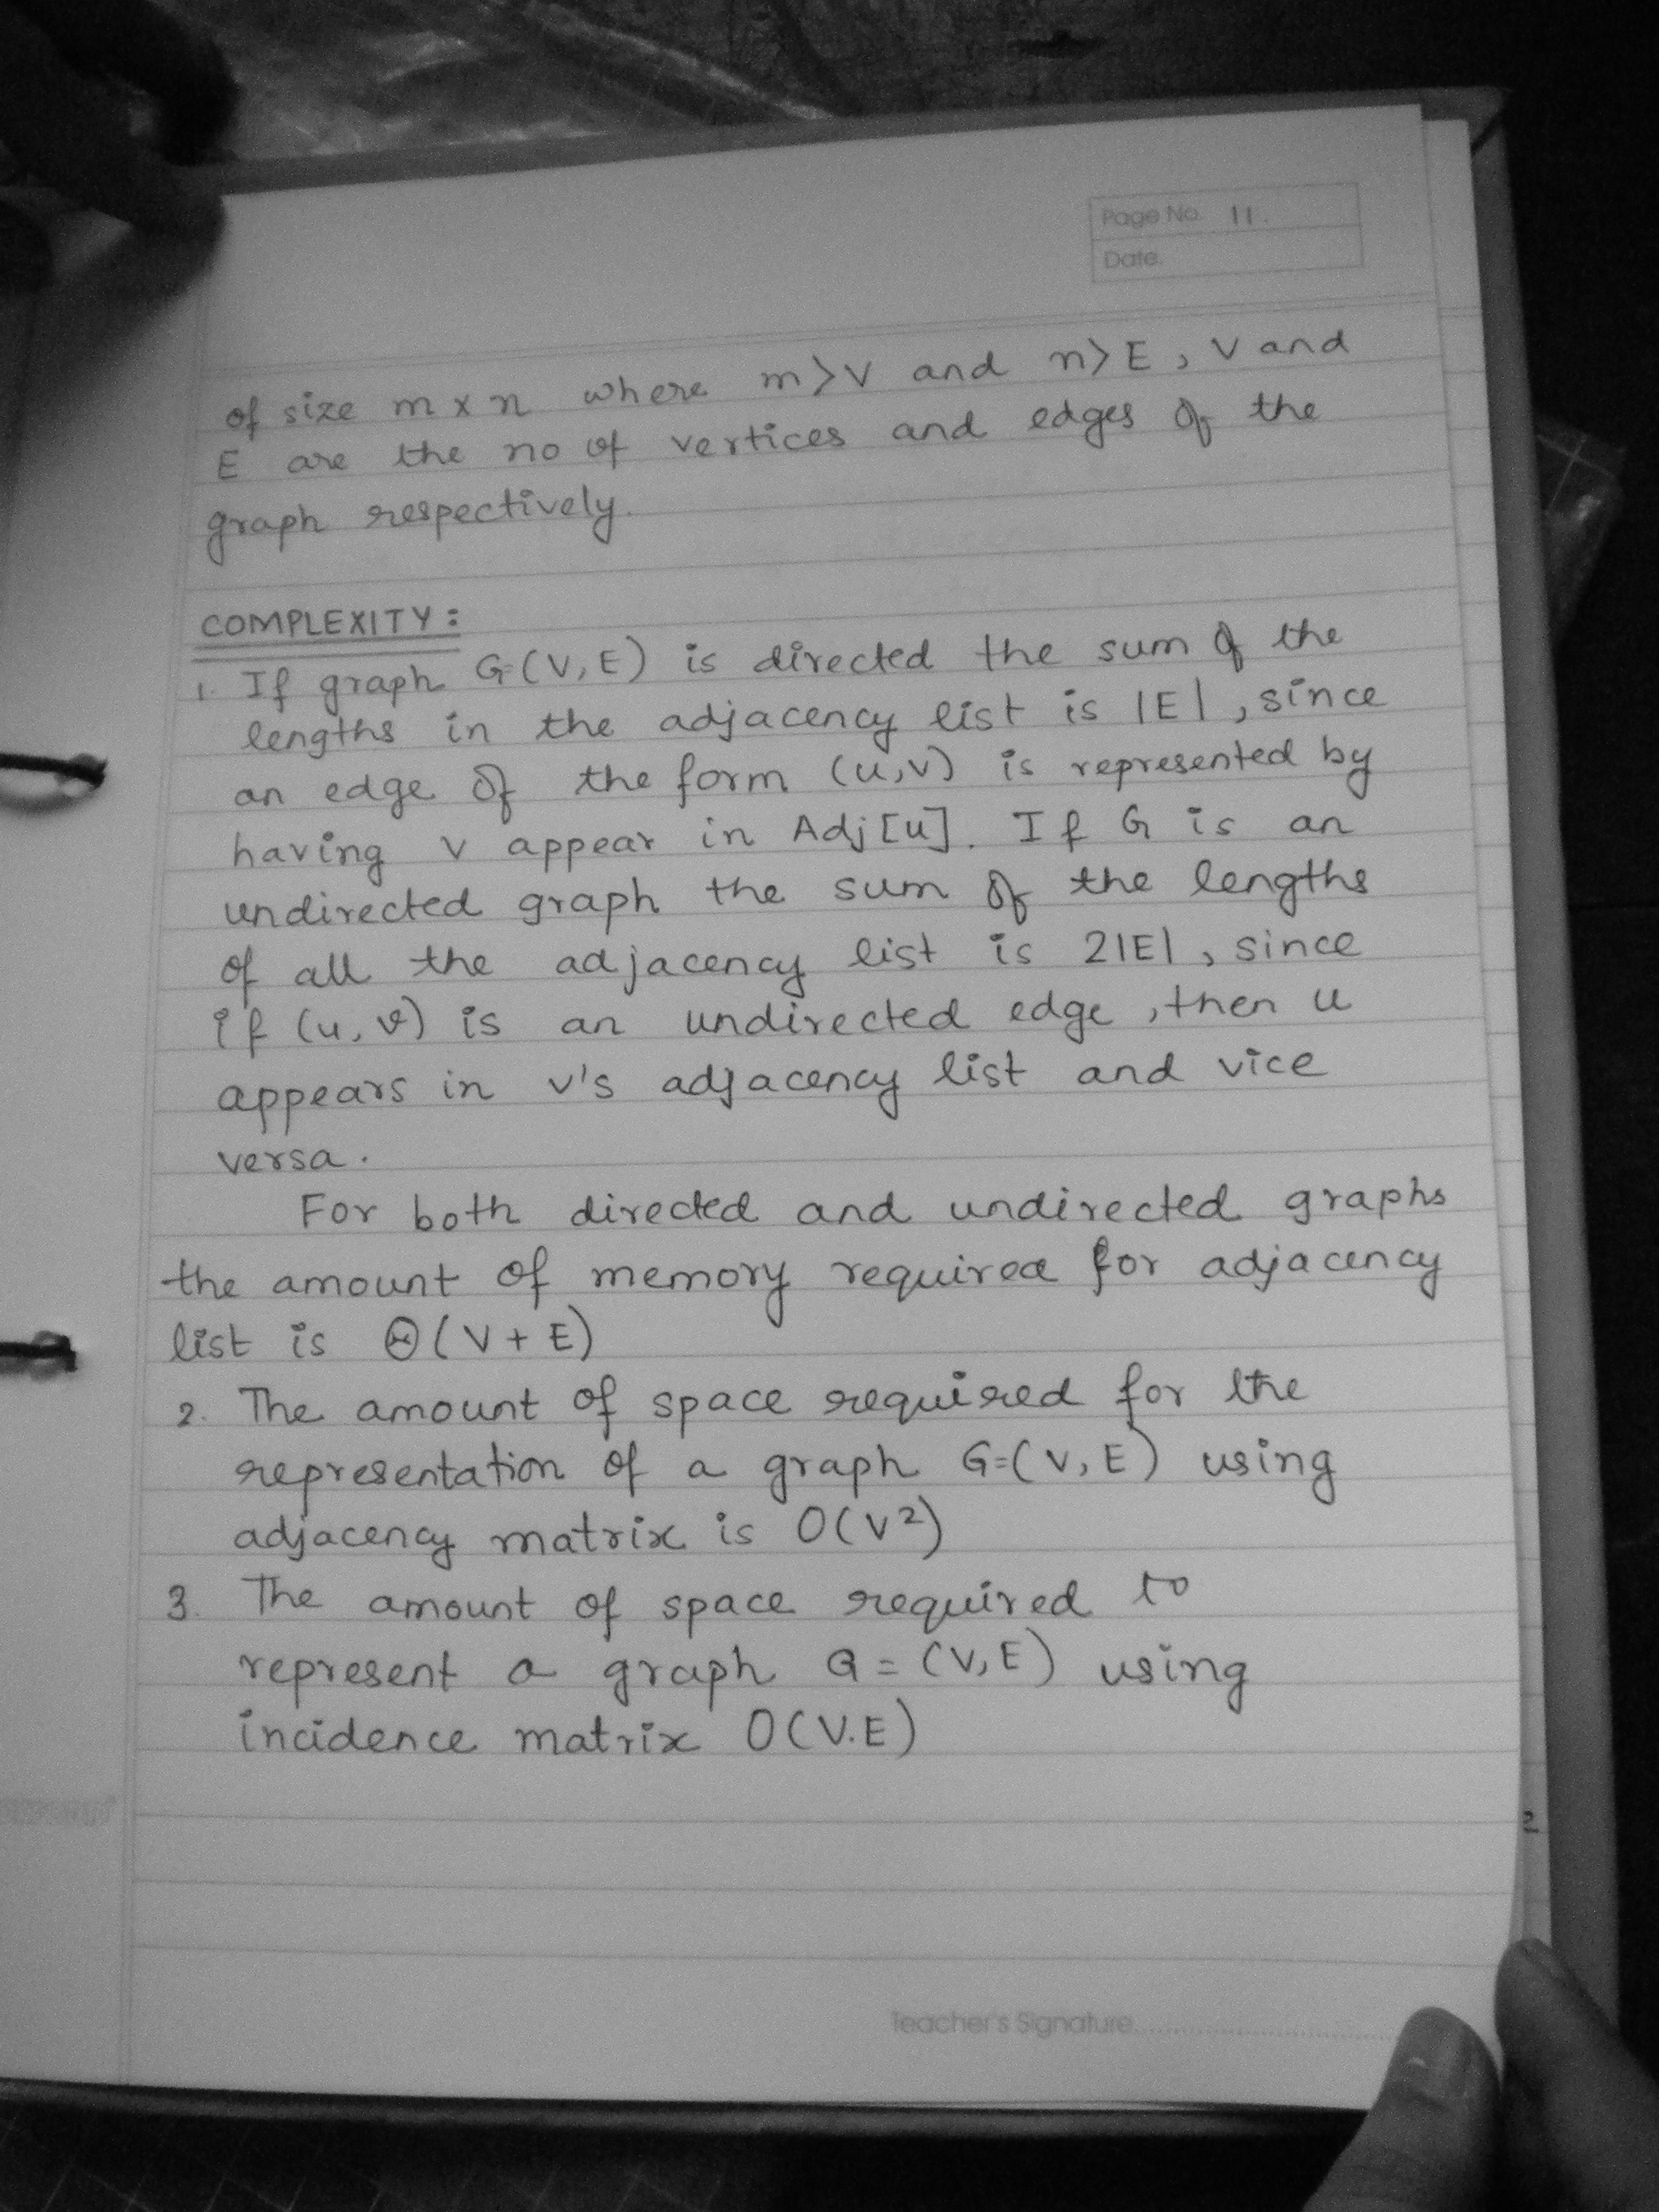 Page No. 11.
Date.
of size m x n where m>V and n>E, V and
E are the no of vertices and edges of the
graph respectively.
COMPLEXITY:
1. If graph G=(V,E) is directed the sum of the
lengths in the adjacency list is |E|, since
an edge of the form (u,v) is represented by
having v appear in Adj[u]. If G is an
undirected graph the sum of the lengths
of all the adjacency list is 2|E|, since
if (u,v) is an undirected edge, then u
appears in v's adjacency list and vice
versa.
For both directed and undirected graphs
the amount of memory required for adjacency
list is Θ(V+E)
2. The amount of space required for the
representation of a graph G=(V,E) using
adjacency matrix is O(V²)
3. The amount of space required to
represent a graph G=(V,E) using
incidence matrix O(V.E)
2
Teacher's Signature